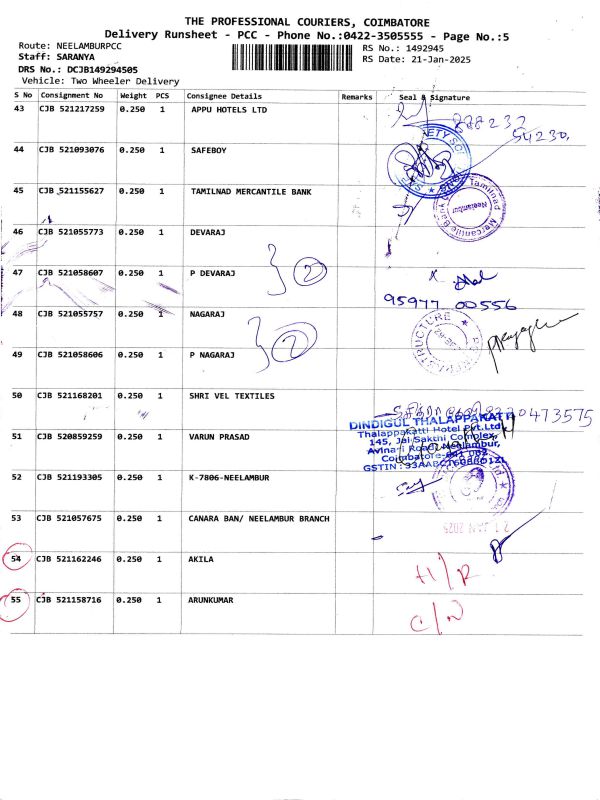 THE PROFESSIONAL COURIERS, COIMBATORE
Delivery Runsheet - PCC - Phone No.:0422-3505555 - Page No.:5
Route: NEELAMBURPCC RS No.: 1492945
Staff: SARANYA RS Date: 21-Jan-2025
DRS No.: DCJB149294505
Vehicle: Two Wheeler Delivery
S No Consignment No Weight PCS Consignee Details Remarks Seal & Signature
43 CJB 521217259 0.250 1 APPU HOTELS LTD
54230.
44 CJB 521093076 0.250 1 SAFEBOY
45 CJB 521155627 0.250 1 TAMILNAD MERCANTILE BANK
Tamilnad Mercantile Bank
Neelambur
46 CJB 521055773 0.250 1 DEVARAJ
47 CJB 521058607 0.250 1 P DEVARAJ
2
95977 00556
48 CJB 521055757 0.250 1 NAGARAJ
2
49 CJB 521058606 0.250 1 P NAGARAJ
50 CJB 521168201 0.250 1 SHRI VEL TEXTILES
DINDIGUL THALAPPAKATTI
Thalappakatti Hotel Pvt.Ltd
51 CJB 520859259 0.250 1 VARUN PRASAD
145, Jai Sakthi Complex,
Avinasi Road, Neelambur,
Coimbatore-641 062
52 CJB 521193305 0.250 1 K-7806-NEELAMBUR
53 CJB 521057675 0.250 1 CANARA BAN/ NEELAMBUR BRANCH
21 JAN 2025
54 CJB 521162246 0.250 1 AKILA
55 CJB 521158716 0.250 1 ARUNKUMAR